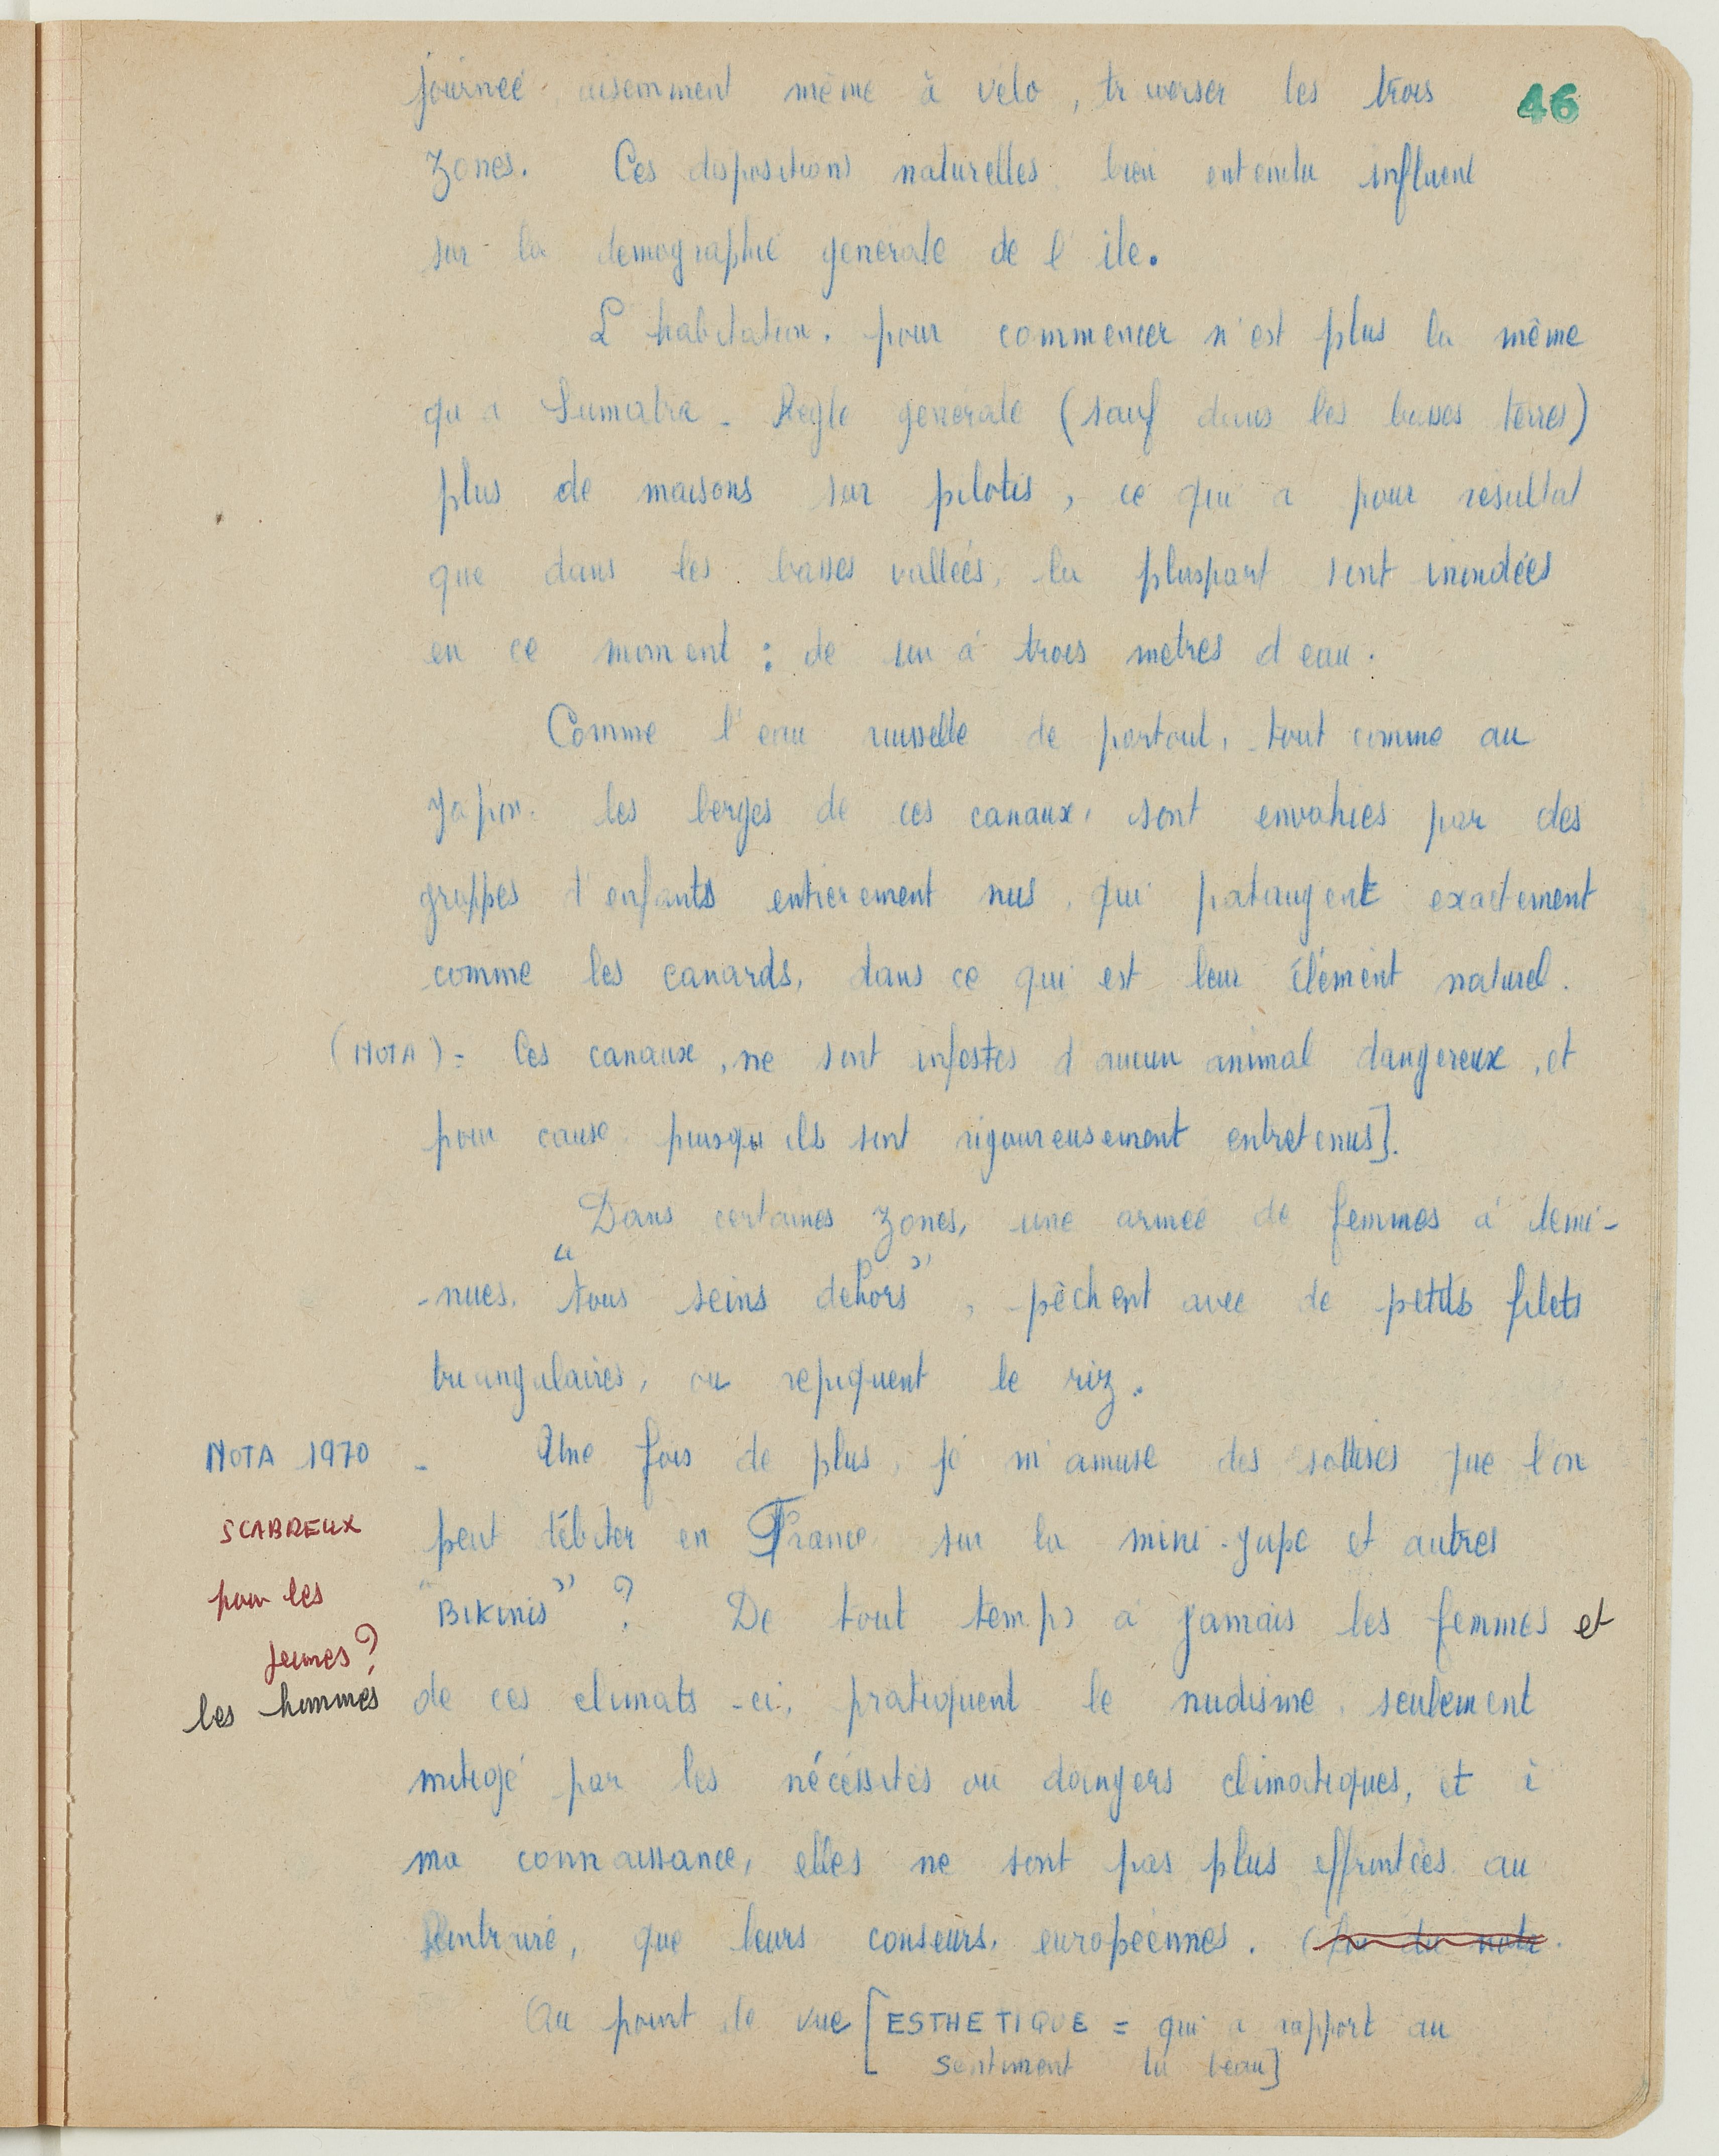 journeé aisemment même à velo, traverser les trois
46
zones. Ces dispositions naturelles bien entendu influent
sur la demographie generale de l'ile.
L'habitation, pour commencer n'est plus la même
qu'a Sumatra - Regle generale (sauf dans les basses terres)
plus de maisons sur pilotis, ce qui a pour resultat
que dans les basses valleés, la pluspart sont inondées
en ce moment : de un à trois metres d'eau.
Comme l'eau ruisselle de partout, tout comme au
Japon. les berges de ces canaux, sont envahies par des
grappes d'enfants entierement nus, qui pataugent exactement
comme les canards, dans ce qui est leur élément naturel.
(NOTA) = Ces canaux, ne sont infestes d'aucun animal dangereux, et
pour cause puisqu'ils sont rigoureusement entretenus].
Dans certaines zones, une armeé de femmes à demi-
-nues, "tous seins dehors", pêchent avec de petits filets
triangulaires, ou repiquent le riz.
NOTA 1970 - Une fois de plus, je m'amuse des sottises que l'on
SCABREUX
peut débiter en France sur la mini-jupe et autres
pour les
"BIKINIS" ? De tout temps à jamais les femmes et
jeunes?
les hommes
de ces climats-ci, pratiquent le nudisme, seulement
mitigé par les nécéssités ou dangers climatiques, et à
ma connaissance, elles ne sont pas plus effrontées au
contraire, que leurs conseurs, européennes. (fin du nota.
Au point de vue [ESTHETIQUE = qui a rapport au
sentiment du beau]